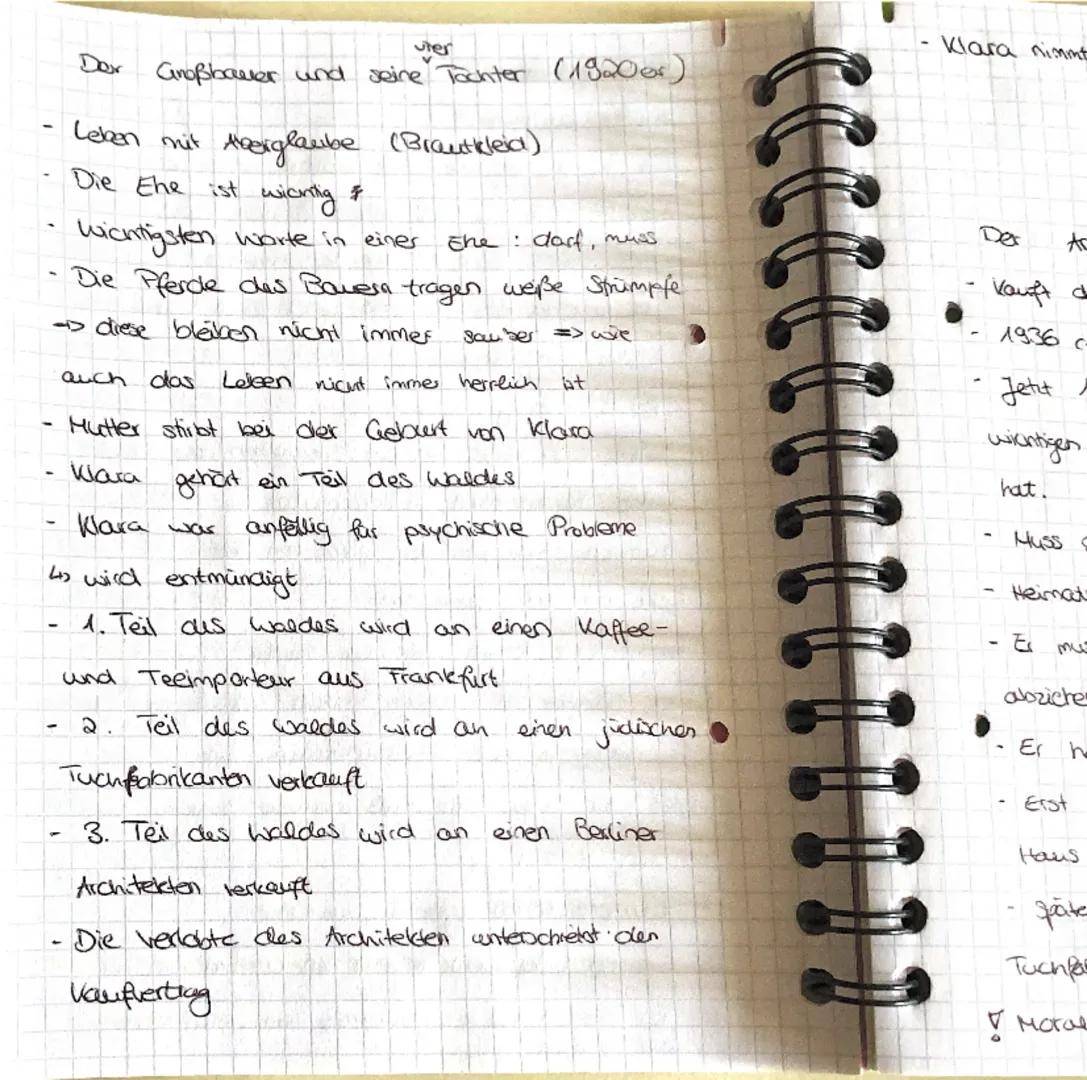 Der Großbauer und seine vier Töchter (1920er)
- Leben mit Aberglaube (Brautkleid)
- Die Ehe ist wichtig
- Wichtigsten Worte in einer Ehe : darf, muss
- Die Pferde des Bauern tragen weiße Strümpfe
=> diese bleiben nicht immer sauber => wie
auch das Leben nicht immer herrlich ist
- Mutter stirbt bei der Geburt von Klara
- Klara gehört ein Teil des Waldes
- Klara war anfällig für psychische Probleme
↳ wird entmündigt
- 1. Teil des Waldes wird an einen Kaffee-
und Teeimporteur aus Frankfurt
- 2. Teil des Waldes wird an einen jüdischen
Tuchfabrikanten verkauft
- 3. Teil des Waldes wird an einen Berliner
Architekten verkauft
- Die Verlobte des Architekten unterschreibt den
Kaufvertrag
- Klara nimmt
Der
- Kauft d
- 1936
- Jetzt
wichtigen
hat.
- Muss
- Heimat
- Er mus
abziehe
- Er h
- Erst
Haus
- Späte
Tuchfa
! Moral